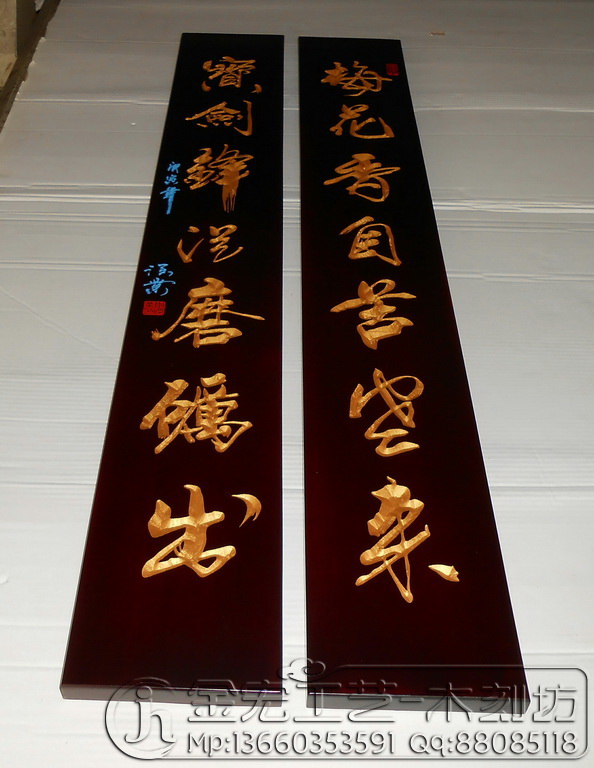 梅花香自苦寒来
寳劍鋒從磨礪出
庚寅年
金宏工艺-木刻坊
Mp:13660353591 QQ:88085118